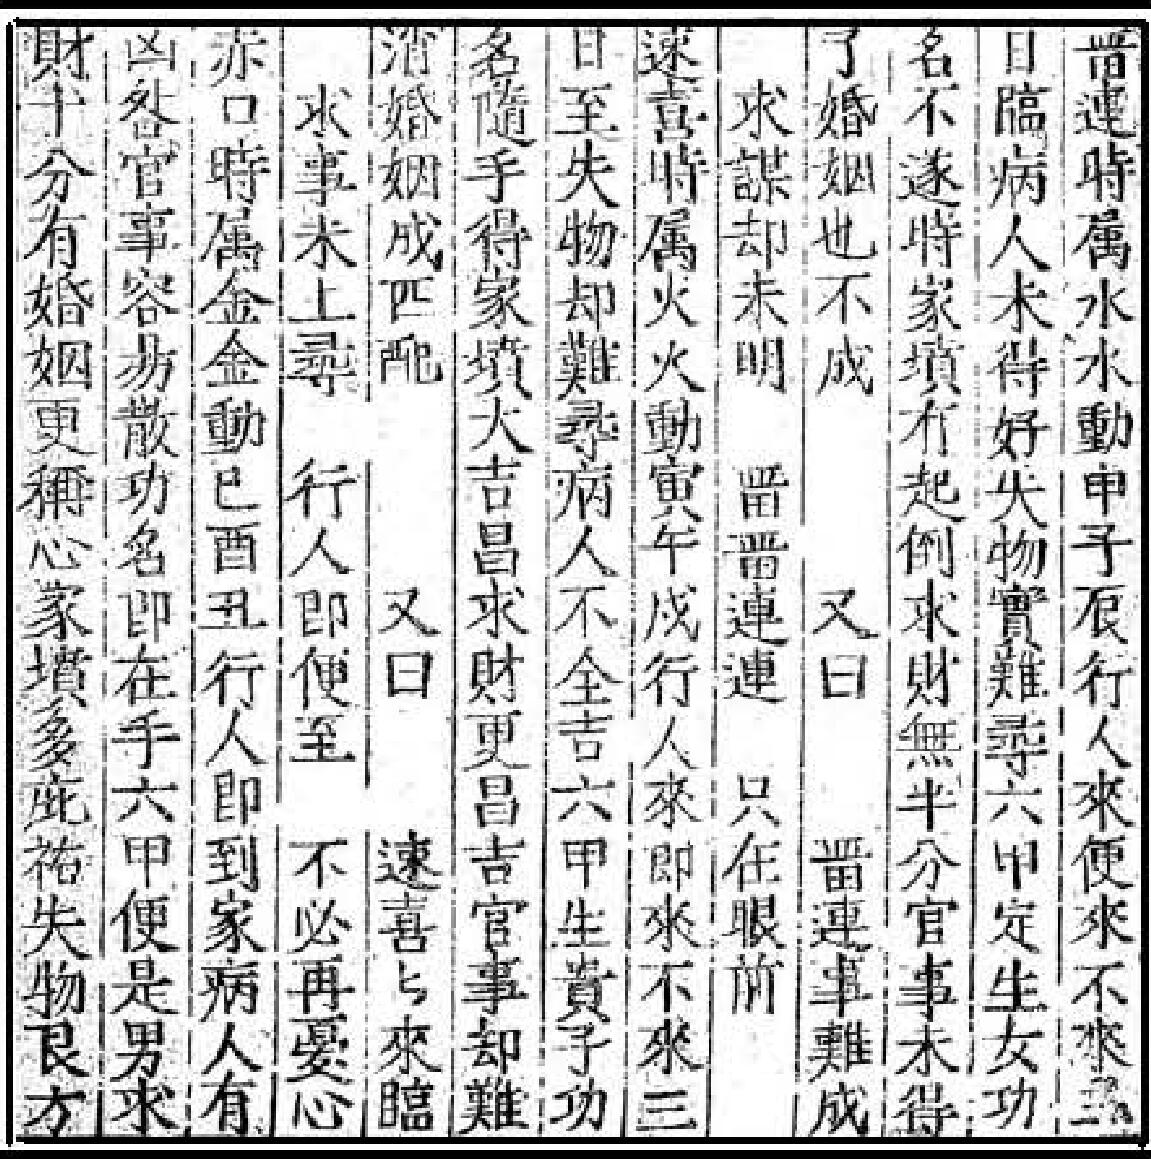 畱連時属水水動申子辰行人來便來不來三
日臨病人未得好失物實難尋六甲定生女功
名不遂時家墳有起倒求財無半分官事未得
了婚姻也不成 又曰 畱連事難成
求謀却未明 畱畱連連 只在眼前
速喜時属火火動寅午戌行人來即來不來三
日至失物却難尋病人不全吉六甲生貴子功
名隨手得家墳大吉昌求財更昌吉官事却難
消婚姻成匹配 又曰 速喜々來臨
求事未上尋 行人即便至 不必再憂心
赤口時属金金動巳酉丑行人即到家病人有
凶咎官事容易散功名即在手六甲便是男求
財十分有婚姻更稱心家墳多庇祐失物艮方